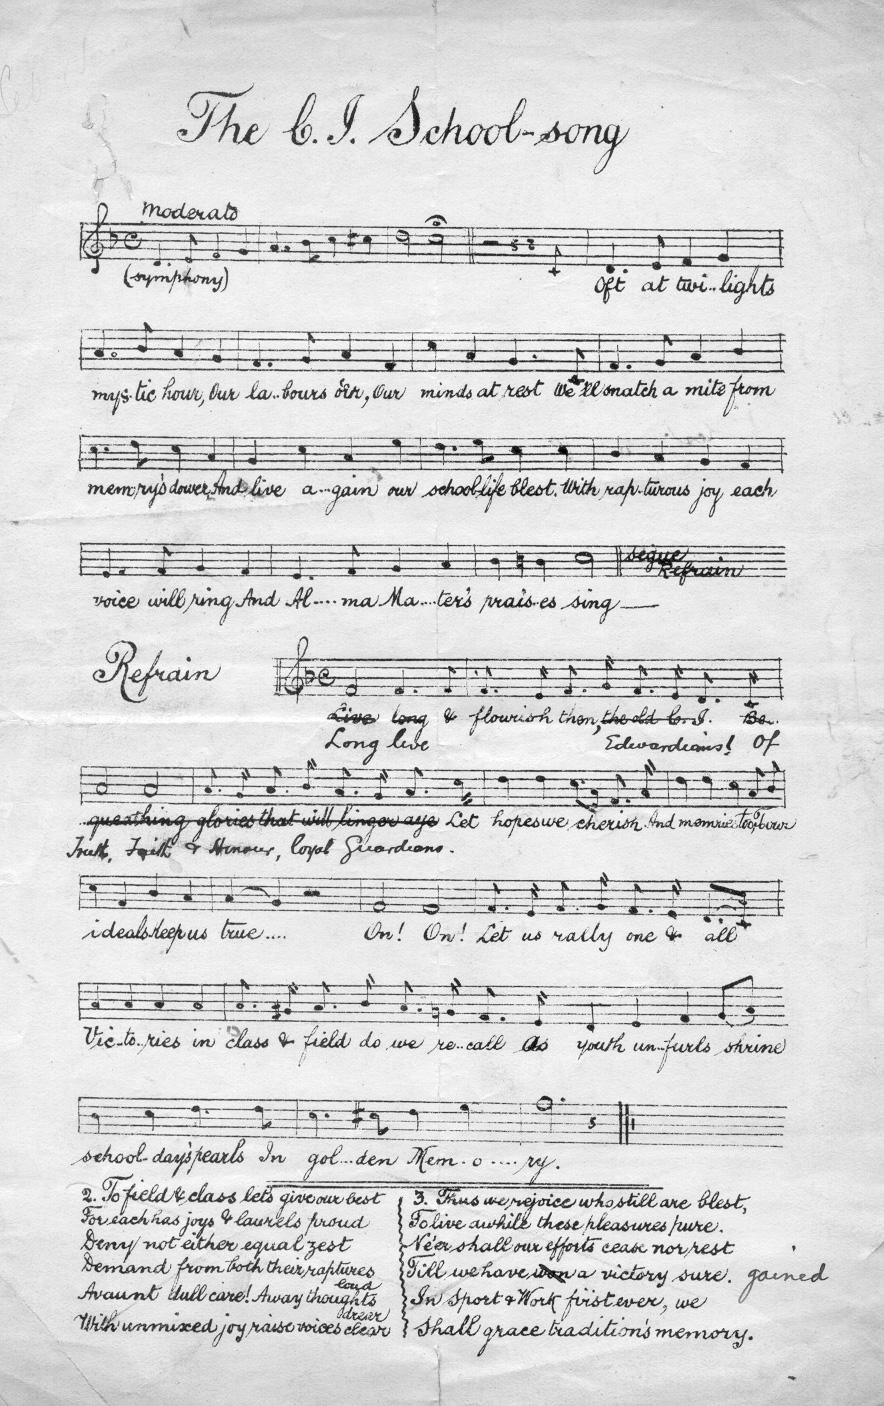 The C. I. School-song
Moderato
(symphony)
Oft at twi..lights
mys.tic hour, Our la..bours o'er, Our minds at rest We'll snatch a mite from
mem'ry's dower, And live a...gain our school-life blest. With rap-turous joy each
voice will ring And Al....ma Ma....ter's prais.es sing
segue
Refrain
Refrain
Live long & flourish then, the old C. I. Be..
Long live Edwardians! Of
queathing glories that will linger aye Let hopes we cherish And mem'ries too, Your
Truth, Faith & Honour, loyal Guardians.
ideals keep us true.... On! On! Let us rally one & all
Vic..to..ries in class & field do we re..call As youth un..furls shrine
school-day's pearls In gol...den Mem..o....ry.
2. To field & class let's give our best
For each has joys & laurels proud
Deny not either equal zest
Demand from both their raptures
loud
Avaunt dull care! Away thoughts
drear
With unmixed joy raise voices clear
3. Thus we rejoice who still are blest,
To live awhile these pleasures pure.
Ne'er shall our efforts cease nor rest
Till we have won a victory sure. gained
In Sport & Work first ever, we
Shall grace tradition's memory.